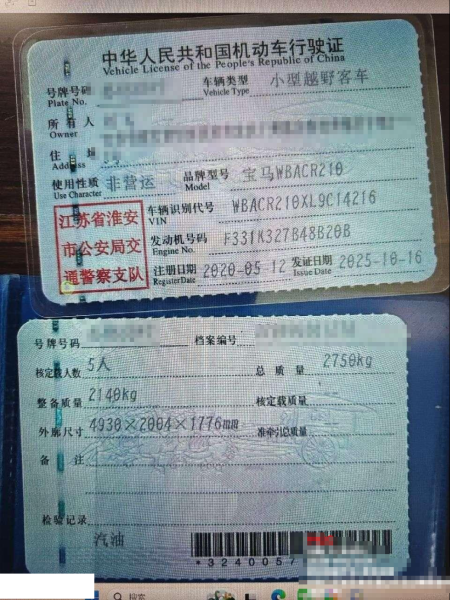 中华人民共和国机动车行驶证
Vehicle License of the People's Republic of China
号牌号码
Plate No.
车辆类型 小型越野客车
Vehicle Type
所有人
Owner
住
Address
使用性质 非营运 品牌型号 宝马WBACR210
Use Character Model
江苏省淮安
市公安局交
通警察支队
车辆识别代号 WBACR210XL9C14216
VIN
发动机号码 F331K327B48B20B
Engine No.
注册日期 2020-05-12 发证日期 2025-10-16
Register Date Issue Date
号牌号码 档案编号
核定载人数 5人 总质量 2750kg
整备质量 2140kg 核定载质量
外廓尺寸 4930×2004×1776mm 准牵引总质量
备注
检验记录
汽油
*3240057
搜索